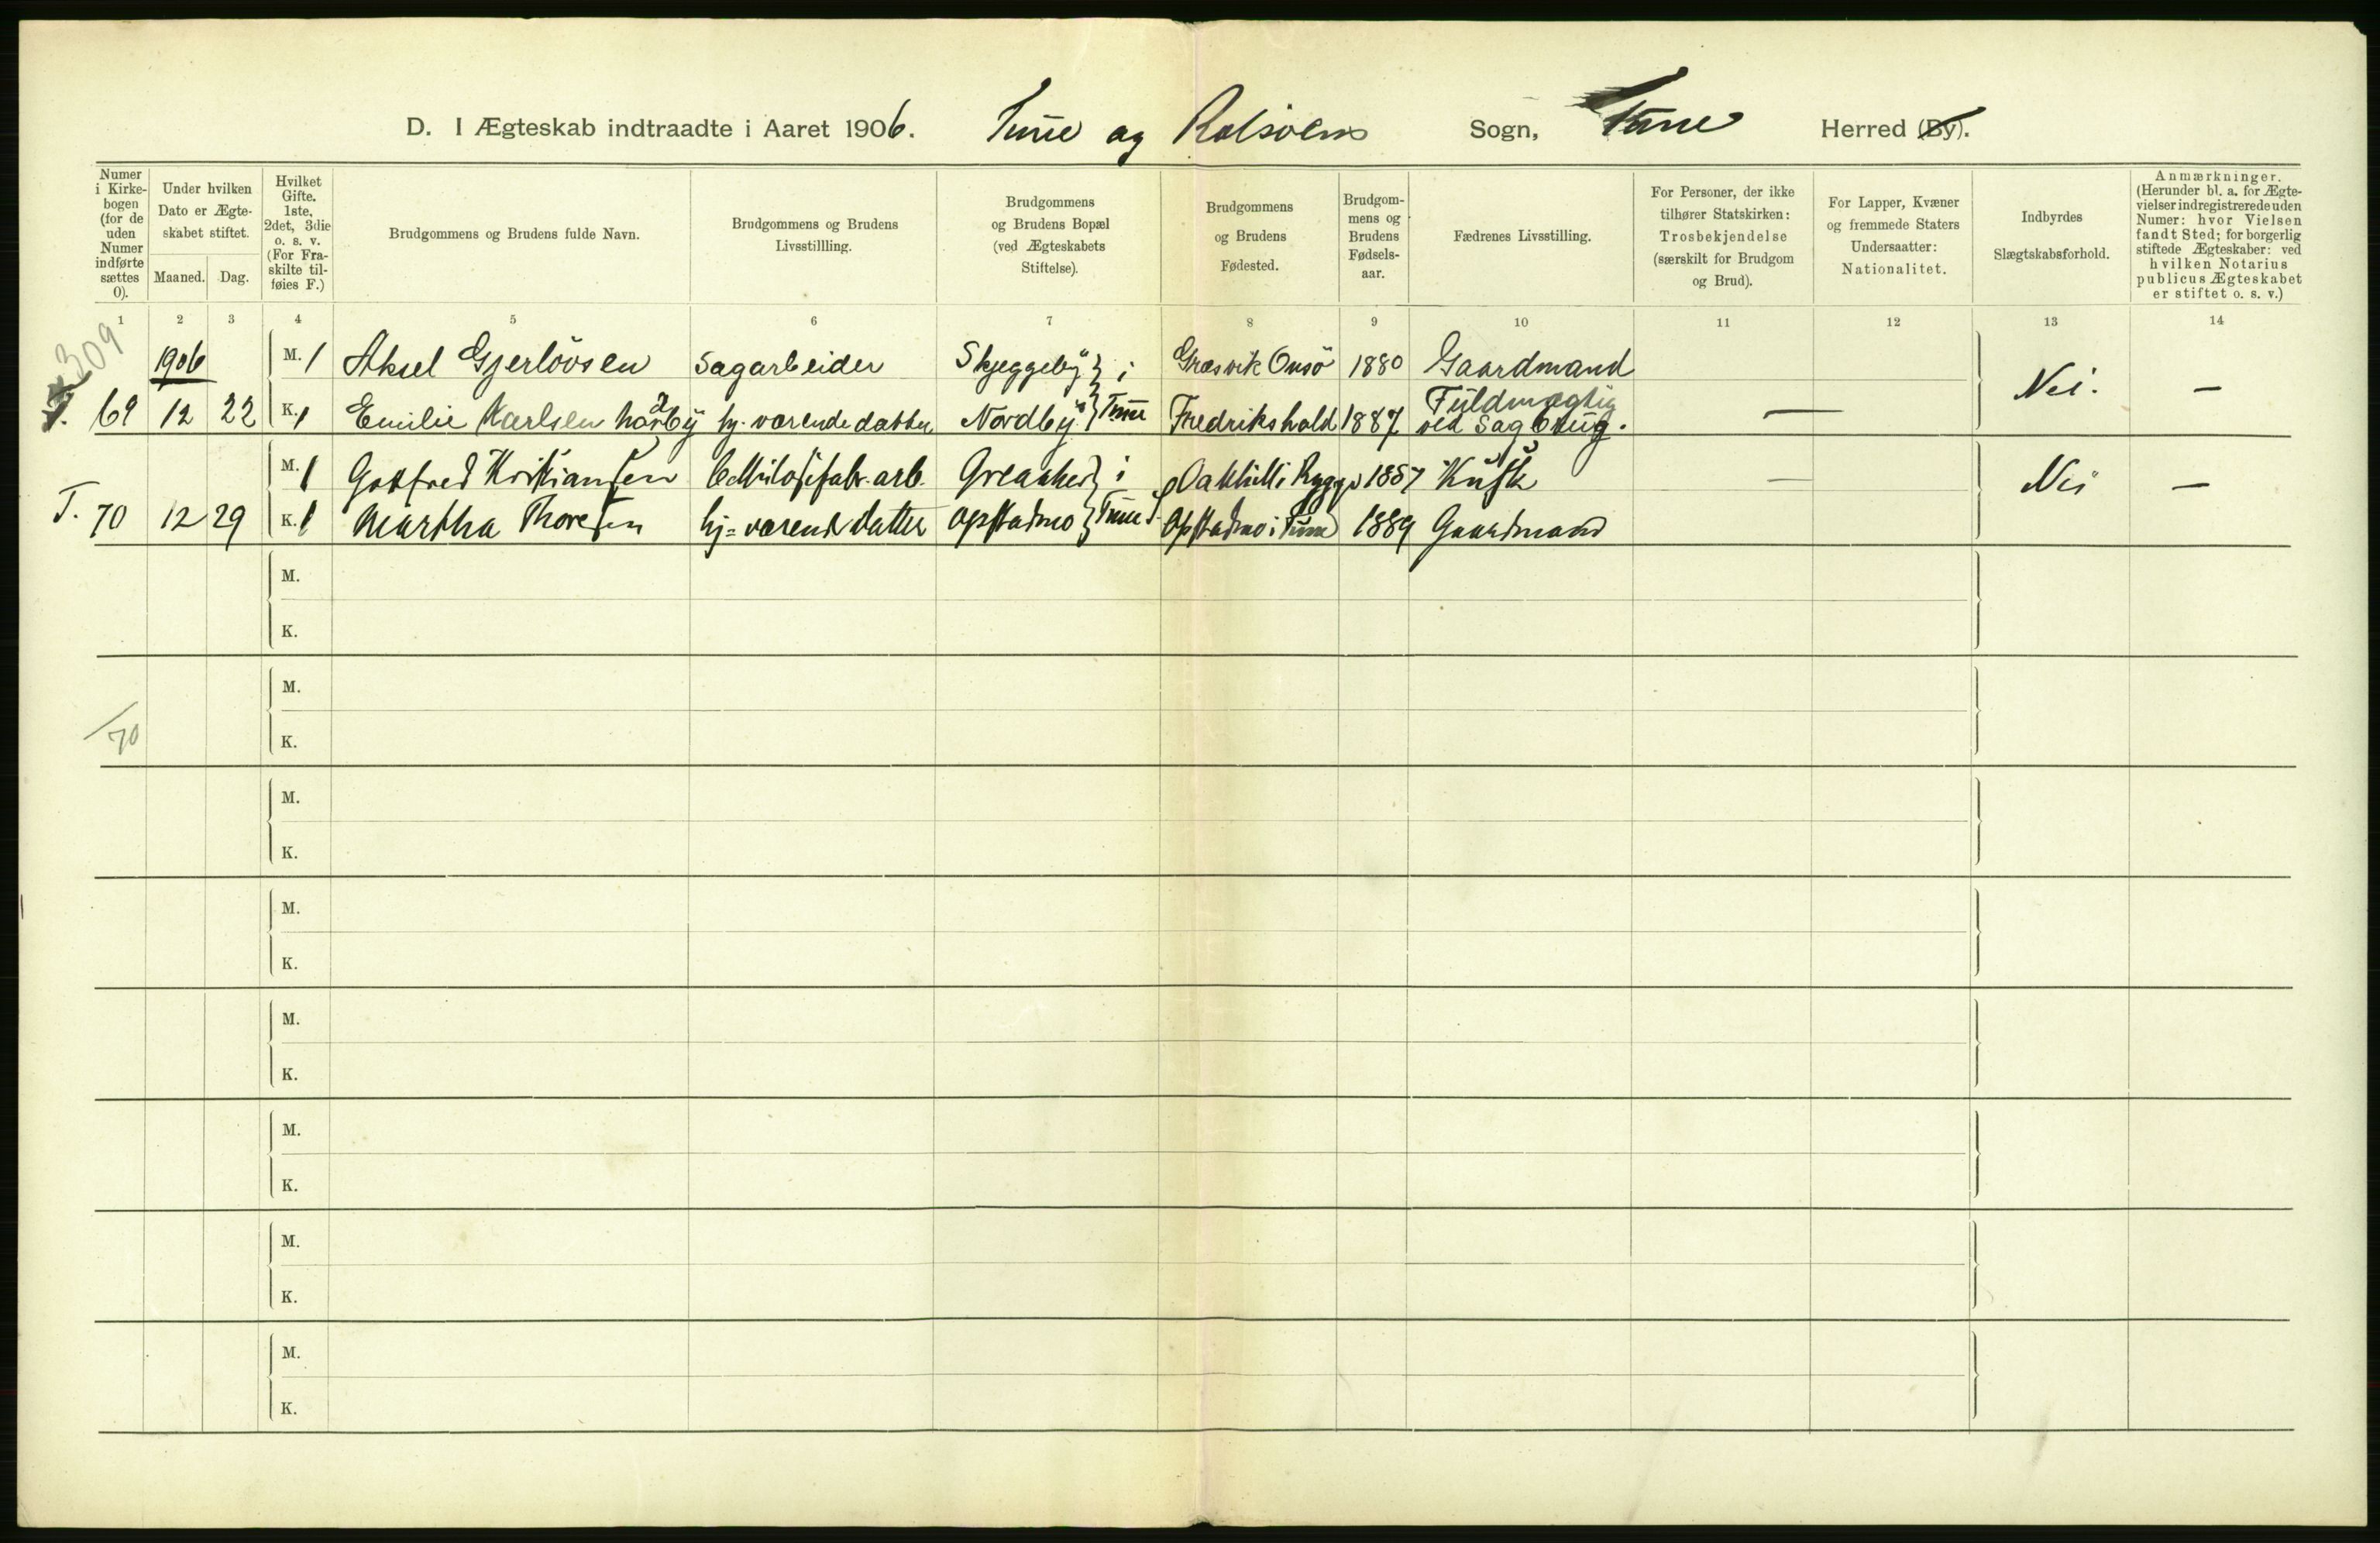 D. I Ægteskab indtraadte i Aaret 1906. Tune og Rolsöens Sogn, Tune Herred (By).
Numer i Kirkebogen (for de uden Numer indførte sættes 0).
Under hvilken Dato er Ægteskabet stiftet.
Maaned. Dag.
Hvilket Gifte. 1ste, 2det, 3die o. s. v. (For Fraskilte tilføies F.)
Brudgommens og Brudens fulde Navn.
Brudgommens og Brudens Livsstillling.
Brudgommens og Brudens Bopæl (ved Ægteskabets Stiftelse).
Brudgommens og Brudens Fødested.
Brudgommens og Brudens Fødselsaar.
Fædrenes Livsstilling.
For Personer, der ikke tilhører Statskirken: Trosbekjendelse (særskilt for Brudgom og Brud).
For Lapper, Kvæner og fremmede Staters Undersaatter: Nationalitet.
Indbyrdes Slægtskabsforhold.
Anmærkninger. (Herunder bl. a. for Ægtevielser indregistrerede uden Numer: hvor Vielsen fandt Sted; for borgerlig stiftede Ægteskaber: ved hvilken Notarius publicus Ægteskabet er stiftet o. s. v.)
1 2 3 4 5 6 7 8 9 10 11 12 13 14
309
1906 M. 1 Aksel Gjerlövsen Sagarbeider Skjeggeby } i Græsvik Onsö 1880 Gaardmand Nei. —
T. 69 12 22 K. 1 Emilie Karlsen Nordby hj. værende datter Nordby } Tune Fredrikshald 1887 Fuldmægtig ved Sagbrug. —
M. 1 Gotfred Kristiansen Cellulosefabr. arb. Greaaker } i Rygge 1887 Kusk — Nei —
T. 70 12 29 K. 1 Martha Thoresen hj=værende datter Opstadmo } Tune Opstadmo i Tune 1889 Gaardmand
M.
K.
M.
70
K.
M.
K.
M.
K.
M.
K.
M.
K.
M.
K.
M.
K.